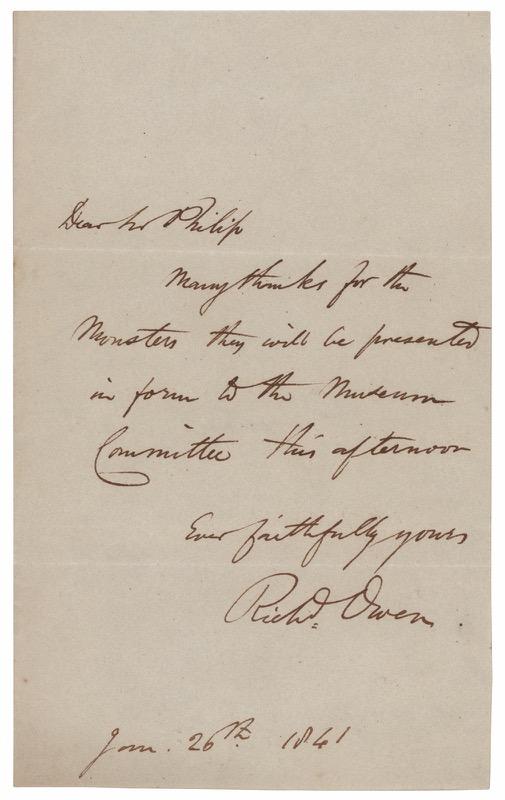 Dear Sir Philip
Many thanks for the
Monsters they will be presented
in form to the Museum
Committee this afternoon
Ever faithfully yours
Richd. Owen.
Jan. 26th. 1841